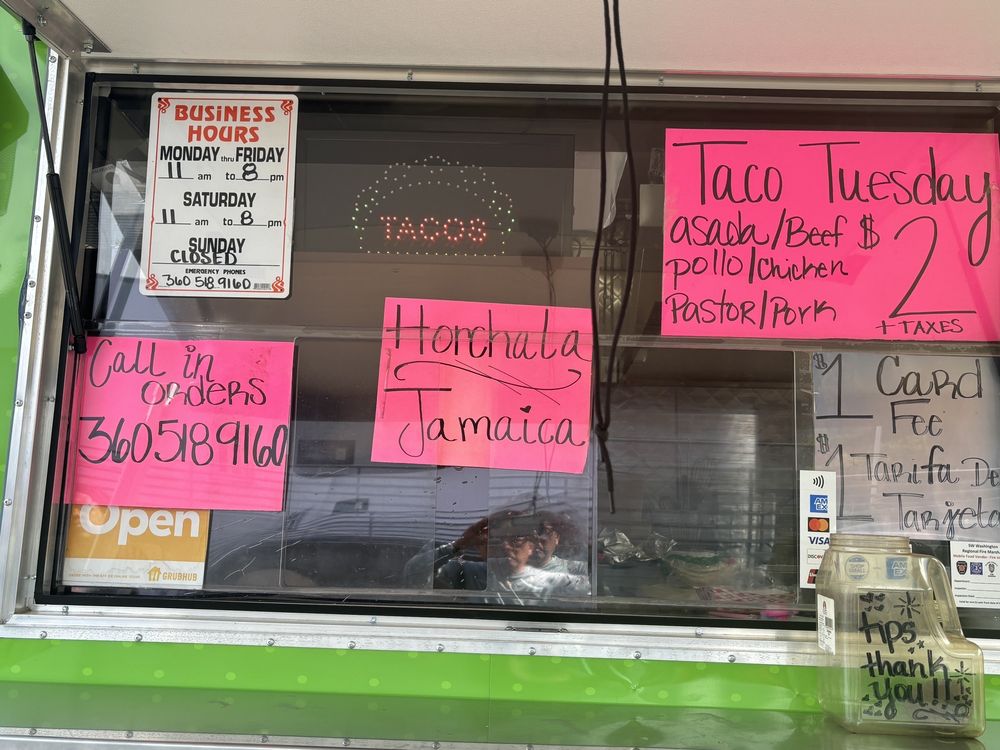 BUSINESS
HOURS
MONDAY thru FRIDAY
11 am to 8 pm
SATURDAY
11 am to 8 pm
SUNDAY
CLOSED
EMERGENCY PHONES
360 518 9160
TACOS
Taco Tuesday
asada/Beef $2
pollo/Chicken
Pastor/Pork
+ TAXES
Horchata
Jamaica
Call in
orders
360 518 9160
Open
GRUBHUB
$1 Card
Fee
$1 Tarifa De
Tarjeta
AM
EX
VISA
DISCOVER
SW Washington
Regional Fire Marsh
Mobile Food Vendor- Fire
tips
thank
you!!